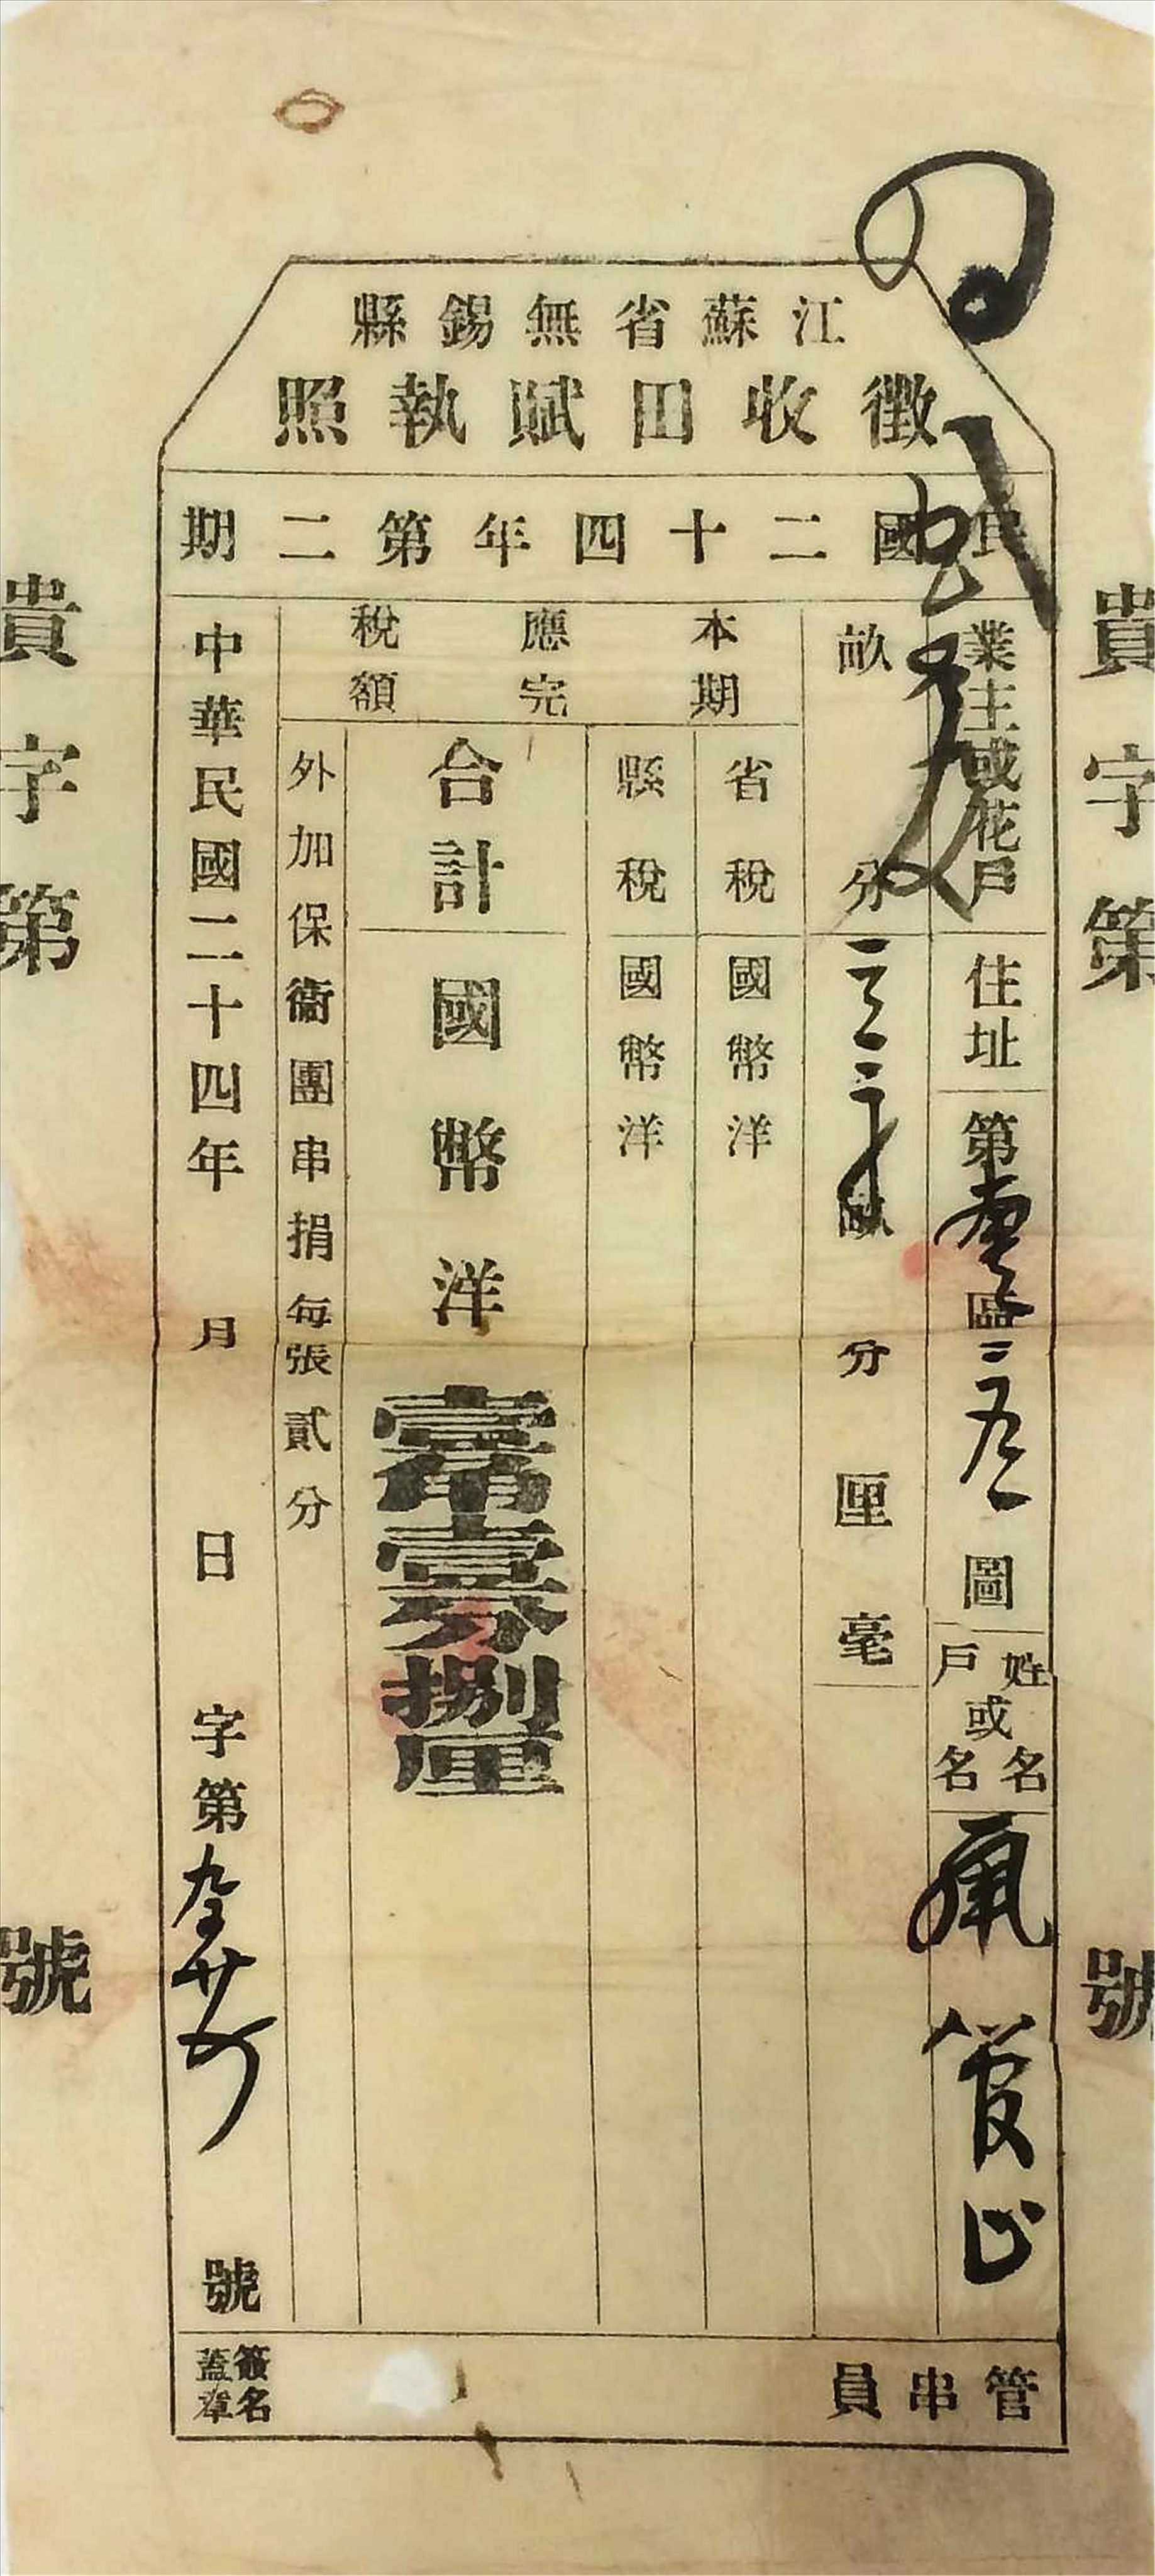 江蘇省無錫縣
徵收田賦執照
民國二十四年第二期
貴字第 號
業主或花戶
住址
第 區 圖
姓名或戶名
畝分
畝分厘毫
本期應完稅額
省稅
國幣洋
縣稅
國幣洋
合計
國幣洋
壹角壹分捌厘
外加保衞團串捐每張貳分
中華民國二十四年 月 日 字第 號
管串員
簽名蓋章
貴字第 號